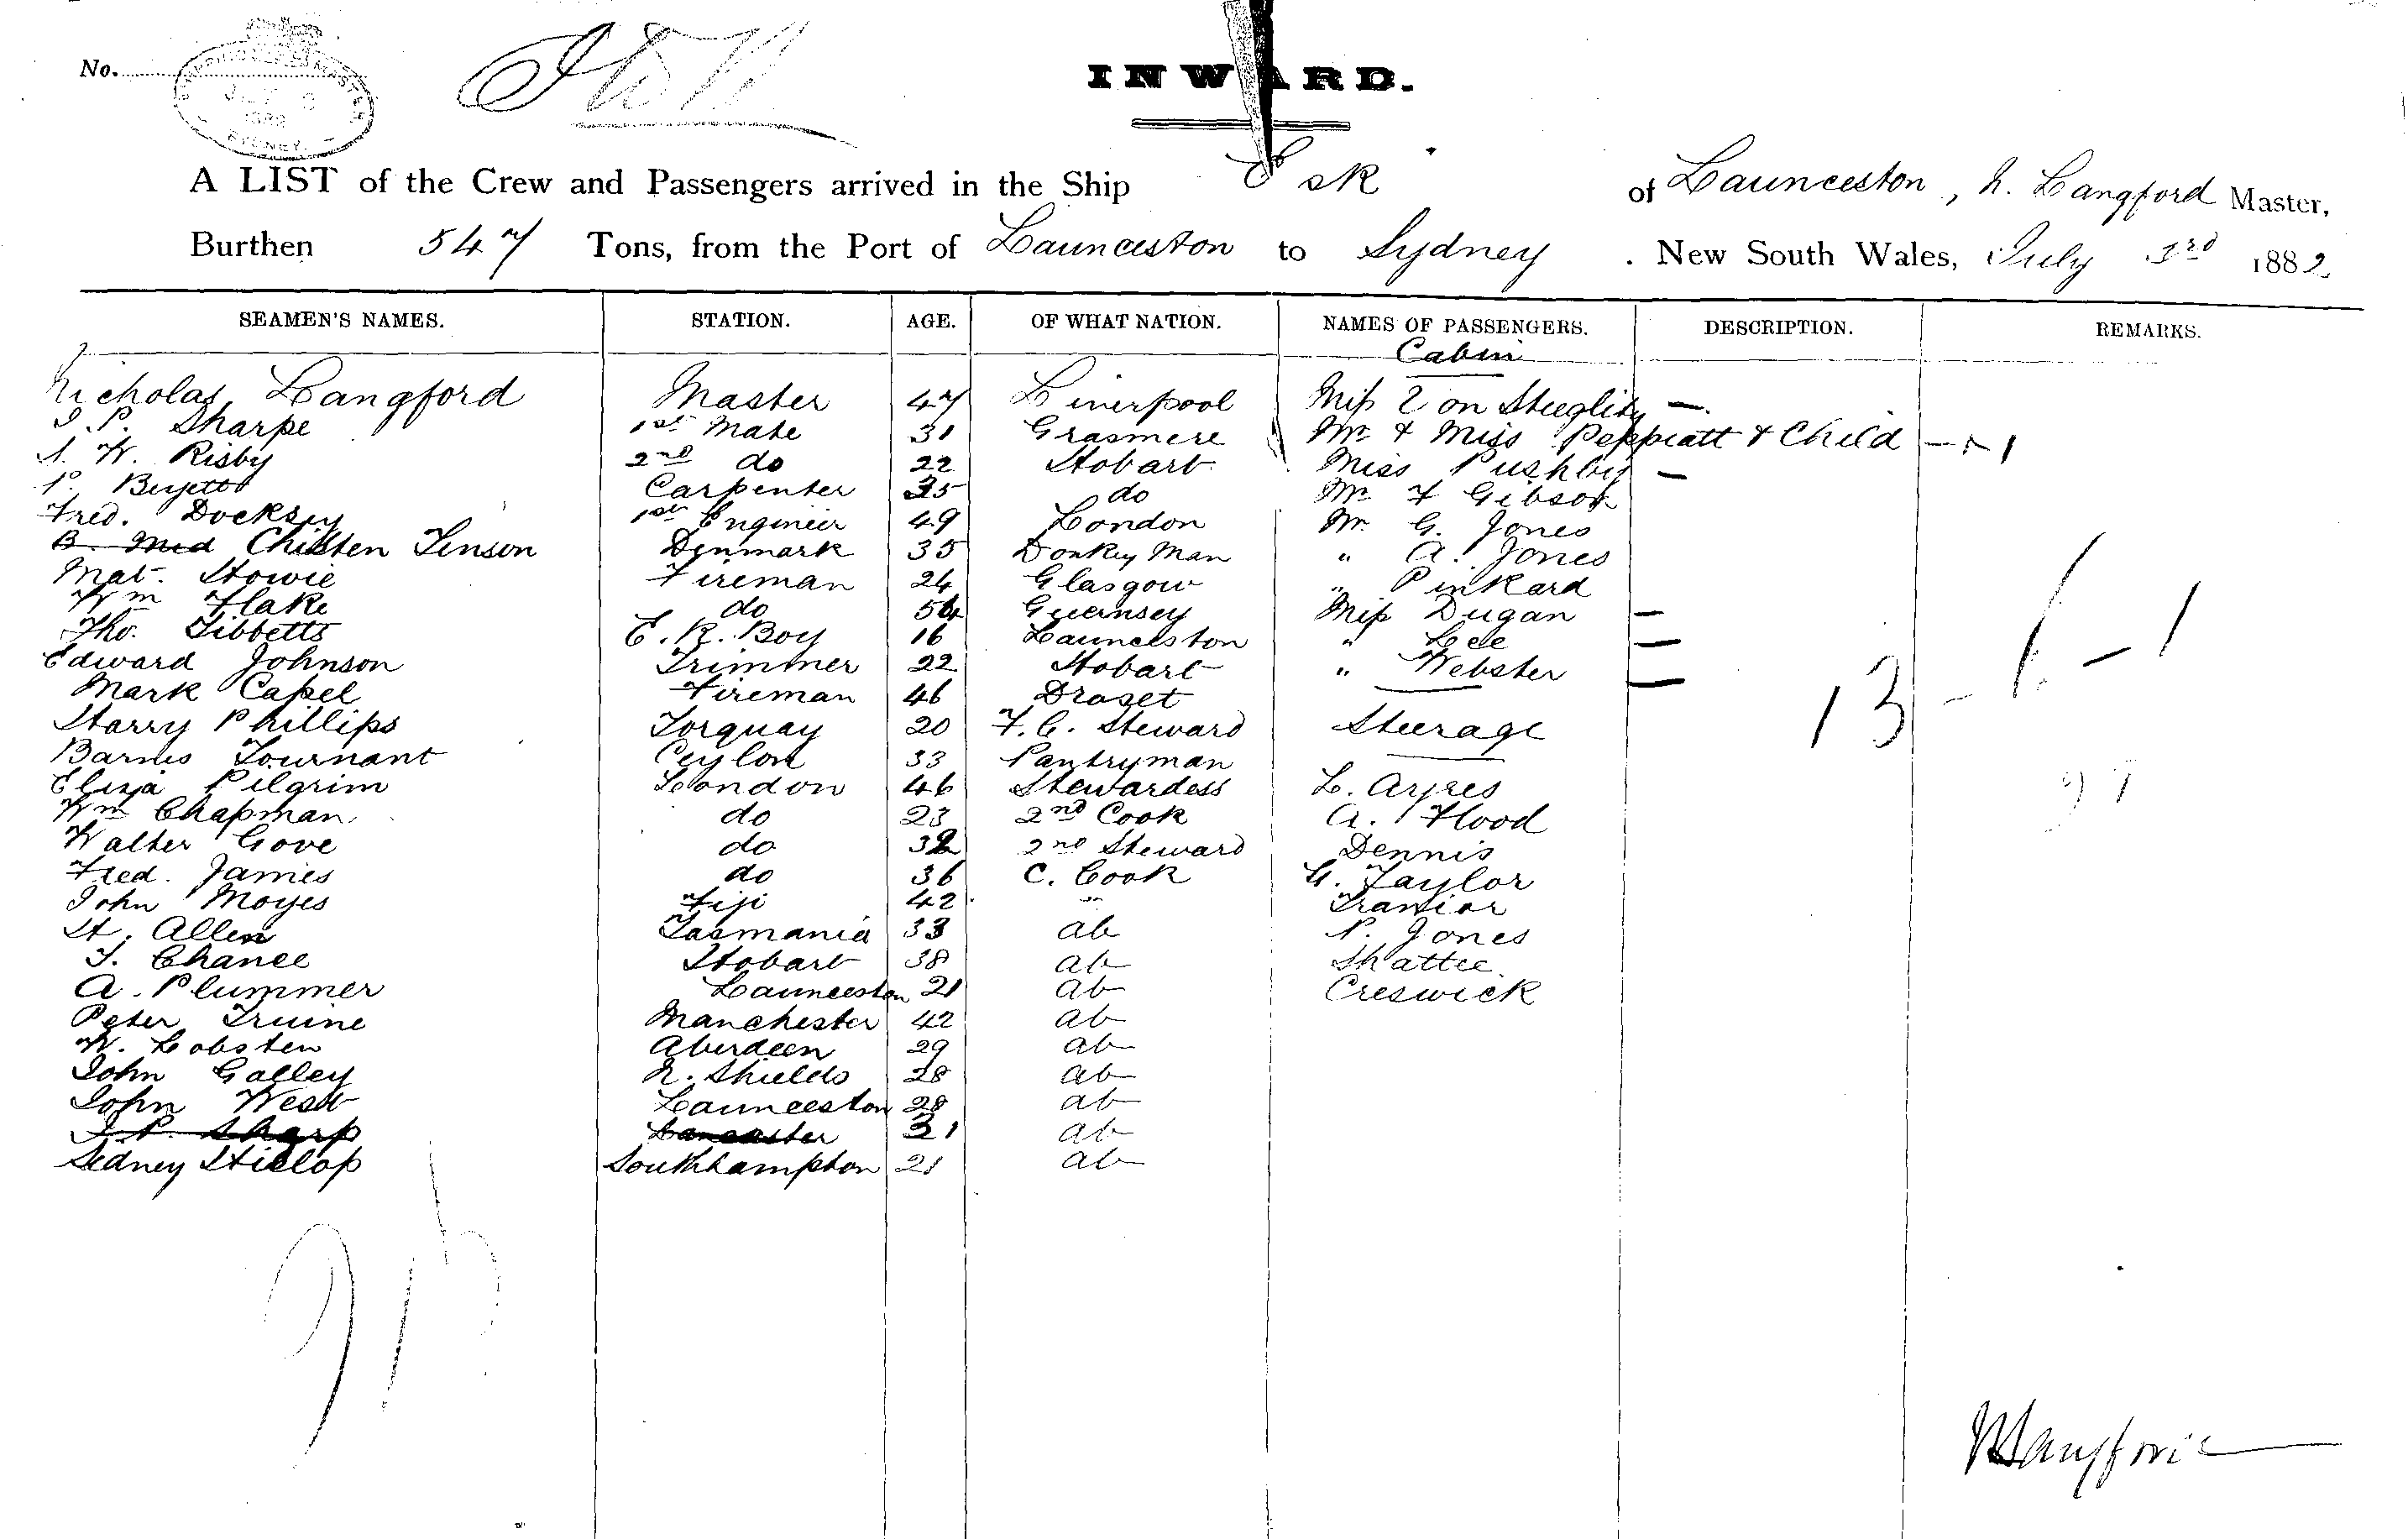 No.
INWARD.
A LIST of the Crew and Passengers arrived in the Ship Esk of Launceston, N. Langford Master,
Burthen 547 Tons, from the Port of Launceston to Sydney. New South Wales, July 3rd 1882.
SEAMEN'S NAMES. STATION. AGE. OF WHAT NATION. NAMES OF PASSENGERS. DESCRIPTION. REMARKS.
Cabin
Nicholas Langford Master 47 Liverpool Miss Von Stieglitz
J. P. Sharpe 1st Mate 31 Grasmere Mr & Miss Peppiatt & Child - 1
W. Risby 2nd do 22 Hobart Miss Pushby
P. Carpenter 35 do Mr F Gibson
Fred. Docksey 1st Engineer 49 London Mr. G. Jones
B. Med Christen Jenson Denmark 35 Donkey Man " A. Jones
Mat. Howie Fireman 24 Glasgow " Pinkard
Wm Flake do 54 Guernsey Miss Dugan
Tho. Tibbetts E. R. Boy 16 Launceston " Lee
Edward Johnson Trimmer 22 Hobart " Webster
Mark Capel Fireman 46 Droset
Harry Phillips Torquay 20 F. C. Steward Steerage
Barnes Tournant Ceylon 33 Pantryman
Eliza Pilgrim London 46 Stewardess L. Ayres
Wm Chapman do 23 2nd Cook A. Flood
Walter Gove do 32 2nd Steward Dennis
Fred. James do 36 C. Cook G. Taylor
John Moyes Fiji 42 "
H. Allen Tasmania 33 ab P. Jones
J. Chance Hobart 38 ab Shattee
A. Plummer Launceston 21 ab Creswick
Peter Truine Manchester 42 ab
W. Lobsten Aberdeen 29 ab
John Galley N. Shields 28 ab
John West Launceston 28 ab
J. P. Sharp Lancaster 31 ab
Sedney Hislop Southhampton 21 ab
13 - 1 - 1